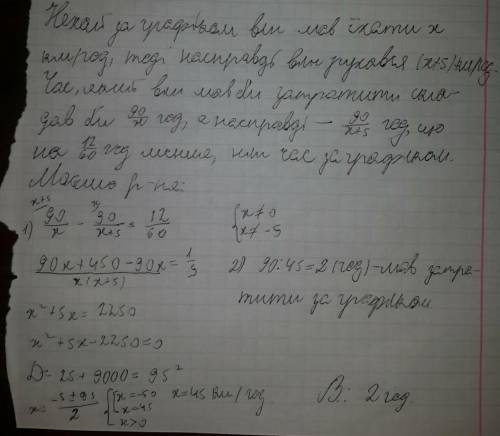 Нехай за графіком він мав їхати x
км/год, тоді насправді він рухався (x+5) км/год.
Час, який він мав би затратити скла-
дав би 90/x год, а насправді — 90/(x+5) год, що
на 12/60 год менше, ніж час за графіком.
Маємо р-ня:
1) 90/x - 90/(x+5) = 12/60 { x≠0 x≠-5
(90x+450-90x)/(x(x+5)) = 1/5 2) 90:45=2 (год) - мав затра-
x²+5x=2250 тити за графіком
x²+5x-2250=0
D=25+9000=95²
x= (-5±95)/2 { x=-50 x=45 x>0 x=45 км/год В: 2 год.